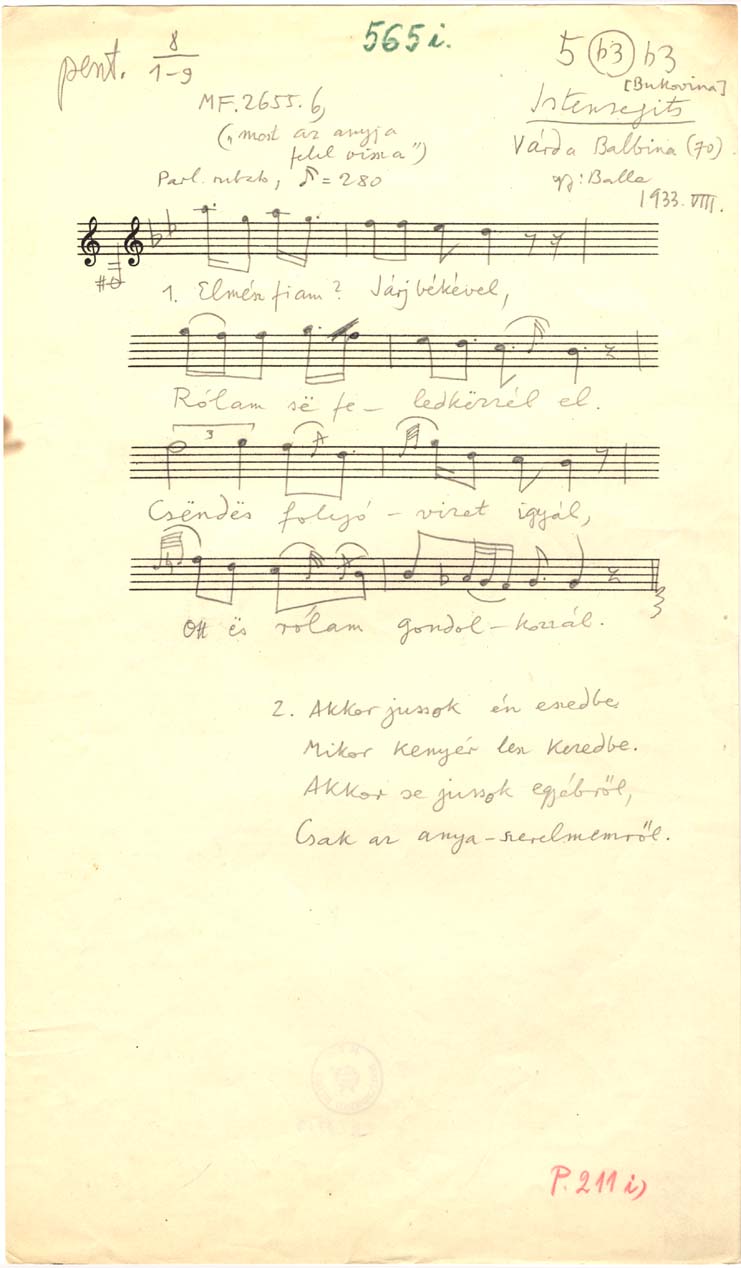 565 i.
pent. 8/1-9
5 (b3) b3
[Bukovina]
MF. 2655. b,
Istensegits
(„most az anyja
felel vissza")
Várda Balbina (70)
Parl. rubato, ♪ = 280
gy: Balla
1933. VIII.
1. Elmész fiam? Járj békével,
Rólam së fe- ledkëzzél el.
3
Csëndës folyó - vizet igyál,
Ott ës rólam gondol - kozzál.
2. Akkor jussok én eszedbe
Mikor kenyér lesz kezedbe.
Akkor se jussok egyébről,
Csak az anya-szerelmemről.
P. 211 i)